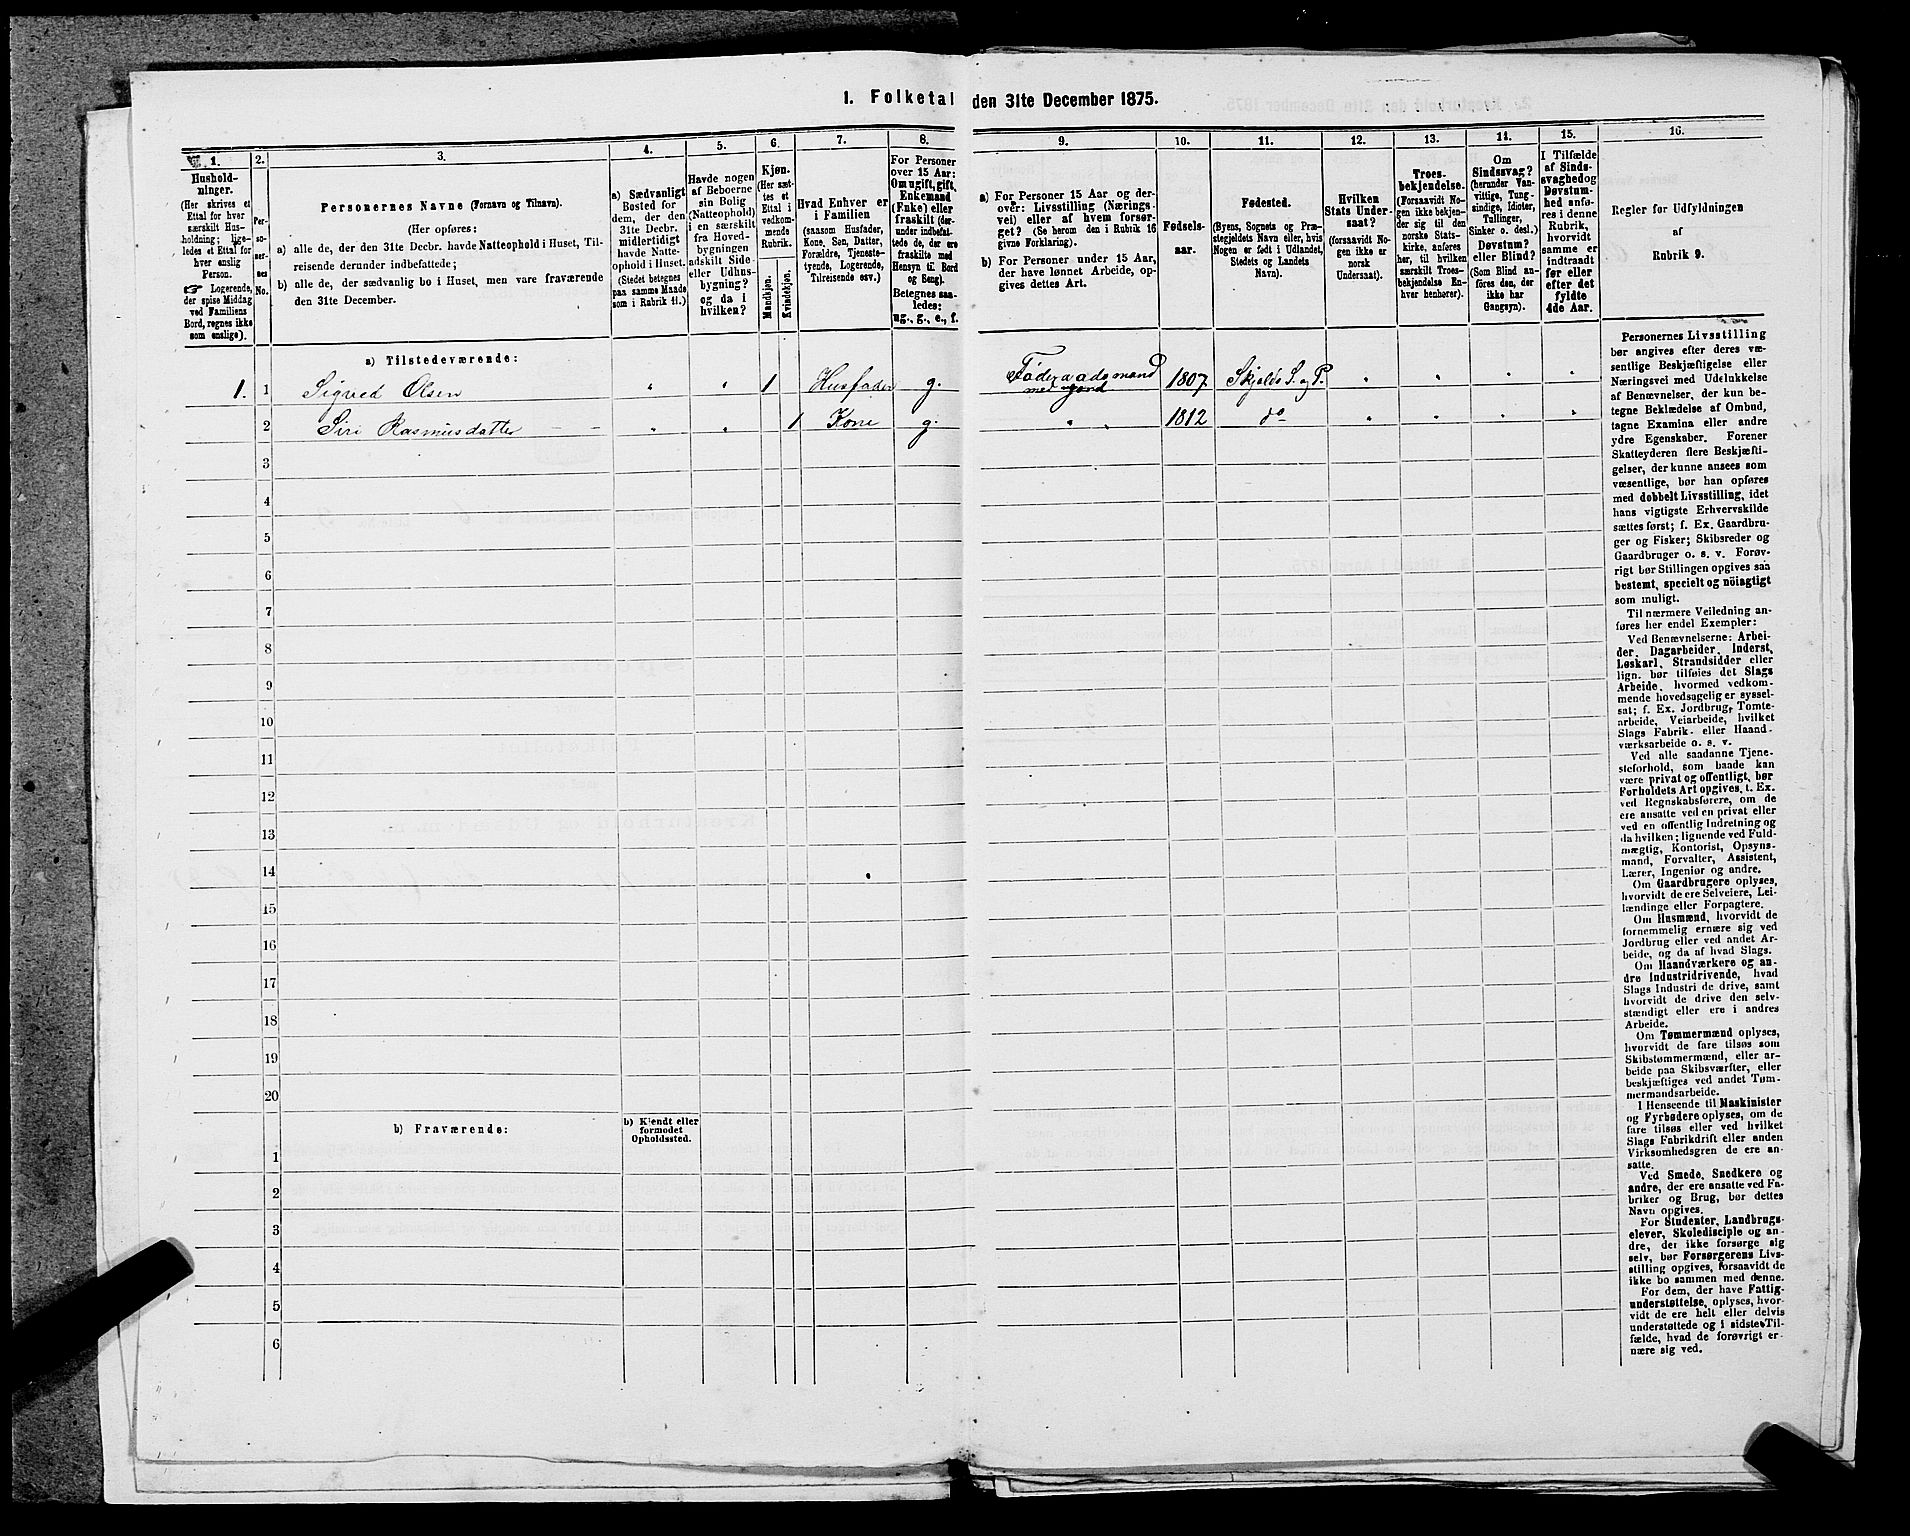 1. Folketal den 31te December 1875.
1.
Hushold-
ninger.
(Her skrives et
Ettal for hver
særskilt Hus-
holdning; lige-
ledes et Ettal for
hver enslig
Person.
☞ Logerende,
der spise Middag
ved Familiens
Bord, regnes ikke
som enslige).
2.
Per-
so-
ner-
nes
No.
3.
Personernes Navne (Fornavn og Tilnavn).
(Her opføres:
a) alle de, der den 31te Decbr. havde Natteophold i Huset, Til-
reisende derunder indbefattede;
b) alle de, der sædvanlig bo i Huset, men vare fraværende
den 31te December.
4.
a) Sædvanligt
Bosted for
dem, der den
31te Decbr.
midlertidigt
havde Natte-
ophold i Huset.
(Stedet betegnes
paa samme Maade
som i Rubrik 11.)
5.
Havde nogen
af Beboerne
sin Bolig
(Natteophold)
i en særskilt
fra Hoved-
bygningen
adskilt Side-
eller Udhus-
bygning?
og da i
hvilken?
6.
Kjøn.
(Her sæt-
tes et
Ettal i
vedkom-
mende
Rubrik.
Mandkjøn.
Kvindekjøn.
7.
Hvad Enhver er
i Familien
(saasom Husfader,
Kone, Søn, Datter,
Forældre, Tjeneste-
tyende, Logerende,
Tilreisende osv.)
8.
For Personer
over 15 Aar:
Om ugift, gift,
Enkemand
(Enke) eller
fraskilt (der-
under indbefat-
tede de, der ere
fraskilte med
Hensyn til Bord
og Seng).
Betegnes saa-
ledes:
ug., g., e., f.
9.
a) For Personer 15 Aar og der-
over: Livsstilling (Nærings-
vei) eller af hvem forsør-
get? (Se herom den i Rubrik 16
givne Forklaring).
b) For Personer under 15 Aar,
der have lønnet Arbeide, op-
gives dettes Art.
10.
Fødsels-
aar.
11.
Fødested.
(Byens, Sognets og Præ-
stegjeldets Navn eller, hvis
Nogen er født i Udlandet,
Stedets og Landets
Navn).
12.
Hvilken
Stats Under-
saat?
(forsaavidt No-
gen ikke er
norsk
Undersaat).
13.
Troes-
bekjendelse.
(Forsaavidt No-
gen ikke bekjen-
der sig til den
norske Stats-
kirke, anføres
her, til hvilken
særskilt Troes-
bekjendelse En-
hver henhører).
14.
Om
Sindssvag?
(herunder Van-
vittige, Tung-
sindige, Idioter,
Tullinger,
Sinker o. desl.)
Døvstum?
eller Blind?
(Som Blind an-
føres den, der
ikke har
Gangsyn).
15.
I Tilfælde
af Sinds-
svaghed og
Døvstum-
hed anfø-
res i denne
Rubrik,
hvorvidt
samme er
indtraadt
før eller
efter det
fyldte
4de Aar.
16.
Regler for Udfyldningen
af
Rubrik 9.
a) Tilstedeværende:
1. 1 Sigved Olsen " " 1 Husfader g. Føderaadsmand 1807 Skjold S. og P. " " " "
med Jord
2 Siri Rasmusdatter " " 1 Kone g. " " 1812 do " " " "
3
4
5
6
7
8
9
10
11
12
13
14
15
16
17
18
19
20
b) Fraværende:
b) Kjendt eller
formodet
Opholdssted.
1
2
3
4
5
6
Personernes Livsstilling
bør angives efter deres væ-
sentlige Beskjæftigelse eller
Næringsvei med Udelukkelse
af Benævnelser, der kun be-
tegne Beklædelse af Ombud,
tagne Examina eller andre
ydre Egenskaber. Forener
Skatteyderen flere Beskjæfti-
gelser, der kunne ansees som
væsentlige, bør han opføres
med dobbelt Livsstilling, idet
hans vigtigste Erhvervskilde
sættes først; f. Ex. Gaardbru-
ger og Fisker; Skibsreder og
Gaardbruger o. s. v. Forøv-
rigt bør Stillingen opgives saa
bestemt, specielt og nöiagtigt
som muligt.
Til nærmere Veiledning an-
føres her endel Exempler:
Ved Benævnelserne: Arbei-
der, Dagarbeider, Inderst,
Løskarl, Strandsidder eller
lign. bør tilføies det Slags
Arbeide, hvormed vedkom-
mende hovedsagelig er syssel-
sat; f. Ex. Jordbrug, Tomte-
arbeide, Veiarbeide, hvilket
Slags Fabrik- eller Haand-
værksarbeide o. s. v.
Ved alle saadanne Tjene-
steforhold, som baade kan
være privat og offentligt, bør
Forholdets Art opgives, t. Ex.
ved Regnskabsførere, om de
ere ansatte ved en privat eller
ved en offentlig Indretning og
da hvilken; lignende ved Fuld-
mægtig, Kontorist, Opsyns-
mand, Forvalter, Assistent,
Lærer, Ingeniør og andre.
Om Gaardbrugere oplyses,
hvorvidt de ere Selveiere, Lei-
lændinge eller Forpagtere.
Om Husmænd, hvorvidt de
fornemmelig ernære sig ved
Jordbrug eller ved andet Ar-
beide, og da af hvad Slags.
Om Haandværkere og an-
dre Industridrivende, hvad
Slags Industri de drive, samt
hvorvidt de drive den selv-
stændigt eller ere i andres
Arbeide.
Om Tømmermænd oplyses,
hvorvidt de fare tilsøs som
Skibstømmermænd, eller ar-
beide paa Skibsværfter, eller
beskjæftiges ved andet Tøm-
mermandsarbeide.
I Henseende til Maskinister
og Fyrbødere oplyses, om de
fare tilsøs eller ved hvilket
Slags Fabrikdrift eller anden
Virksomhedsgren de ere an-
satte.
Ved Smede, Snedkere og
andre, der ere ansatte ved Fa-
briker og Brug, bør dettes
Navn opgives.
For Studenter, Landbrugs-
elever, Skoledisciple og an-
dre, der ikke forsørge sig
selv, bør Forsørgerens Livs-
stilling opgives, forsaavidt de
ikke bo sammen med denne.
For dem, der have Fattig-
understøttelse, oplyses, hvor-
vidt de ere helt eller delvis
understøttede og i sidste Til-
fælde, hvad de forøvrigt er-
nære sig ved.